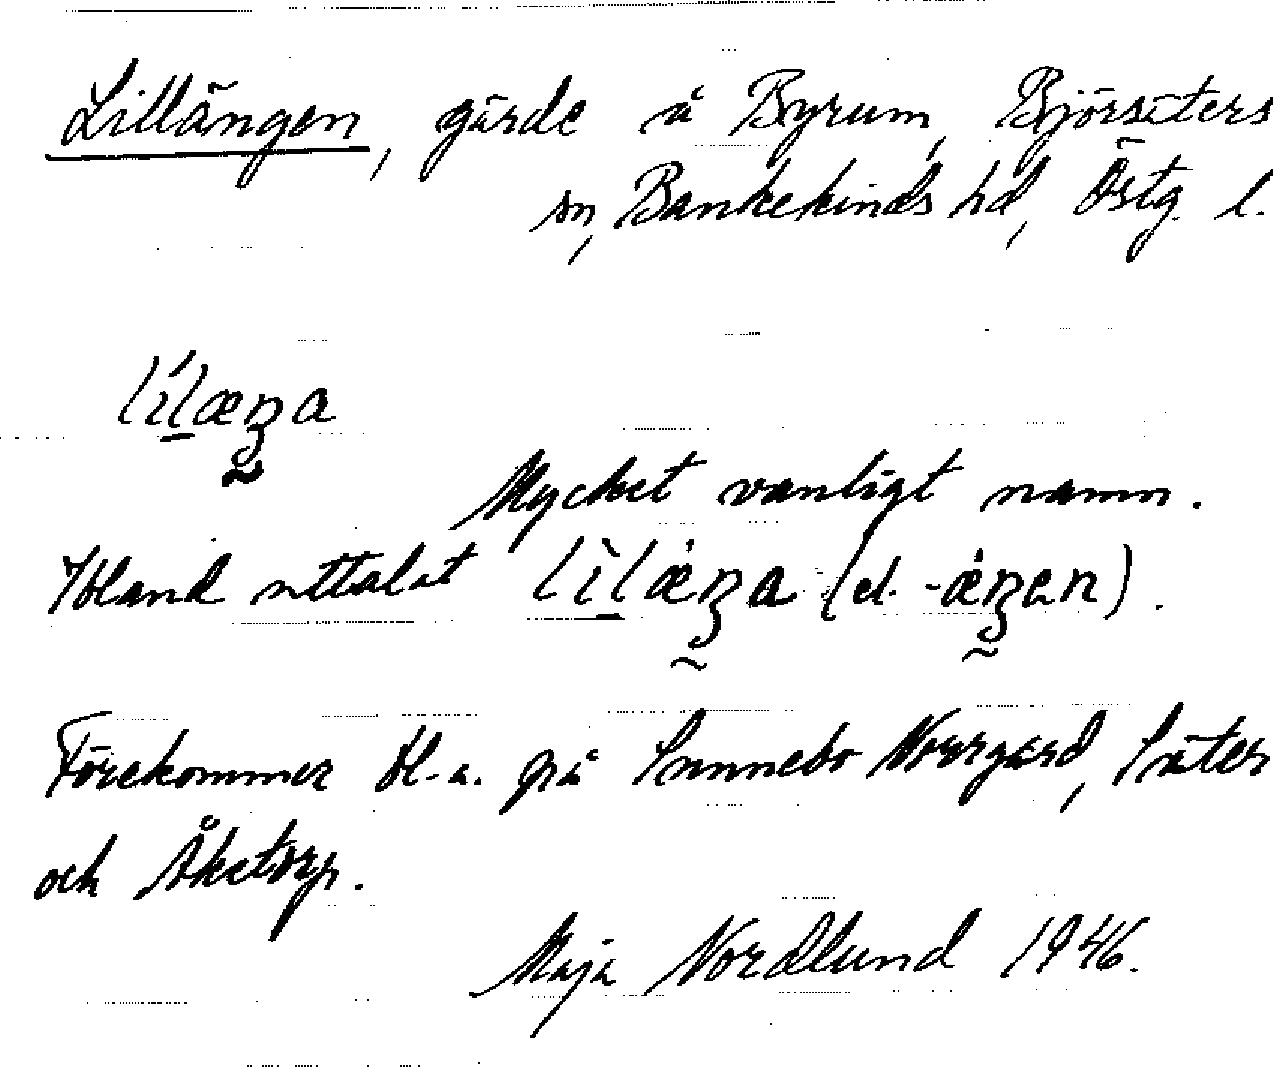 Lillängen, gärde å Byrum, Björsäters
sn, Bankekinds hd, Östg. l.
lílæŋa
Mycket vanligt namn.
Ibland uttalat lìlæ̀ŋa (el. -æ̀ŋen).
Förekommer bl.a. på Sunnebo Norrgård, Säter
och Åketorp.
Maja Nordlund 1946.